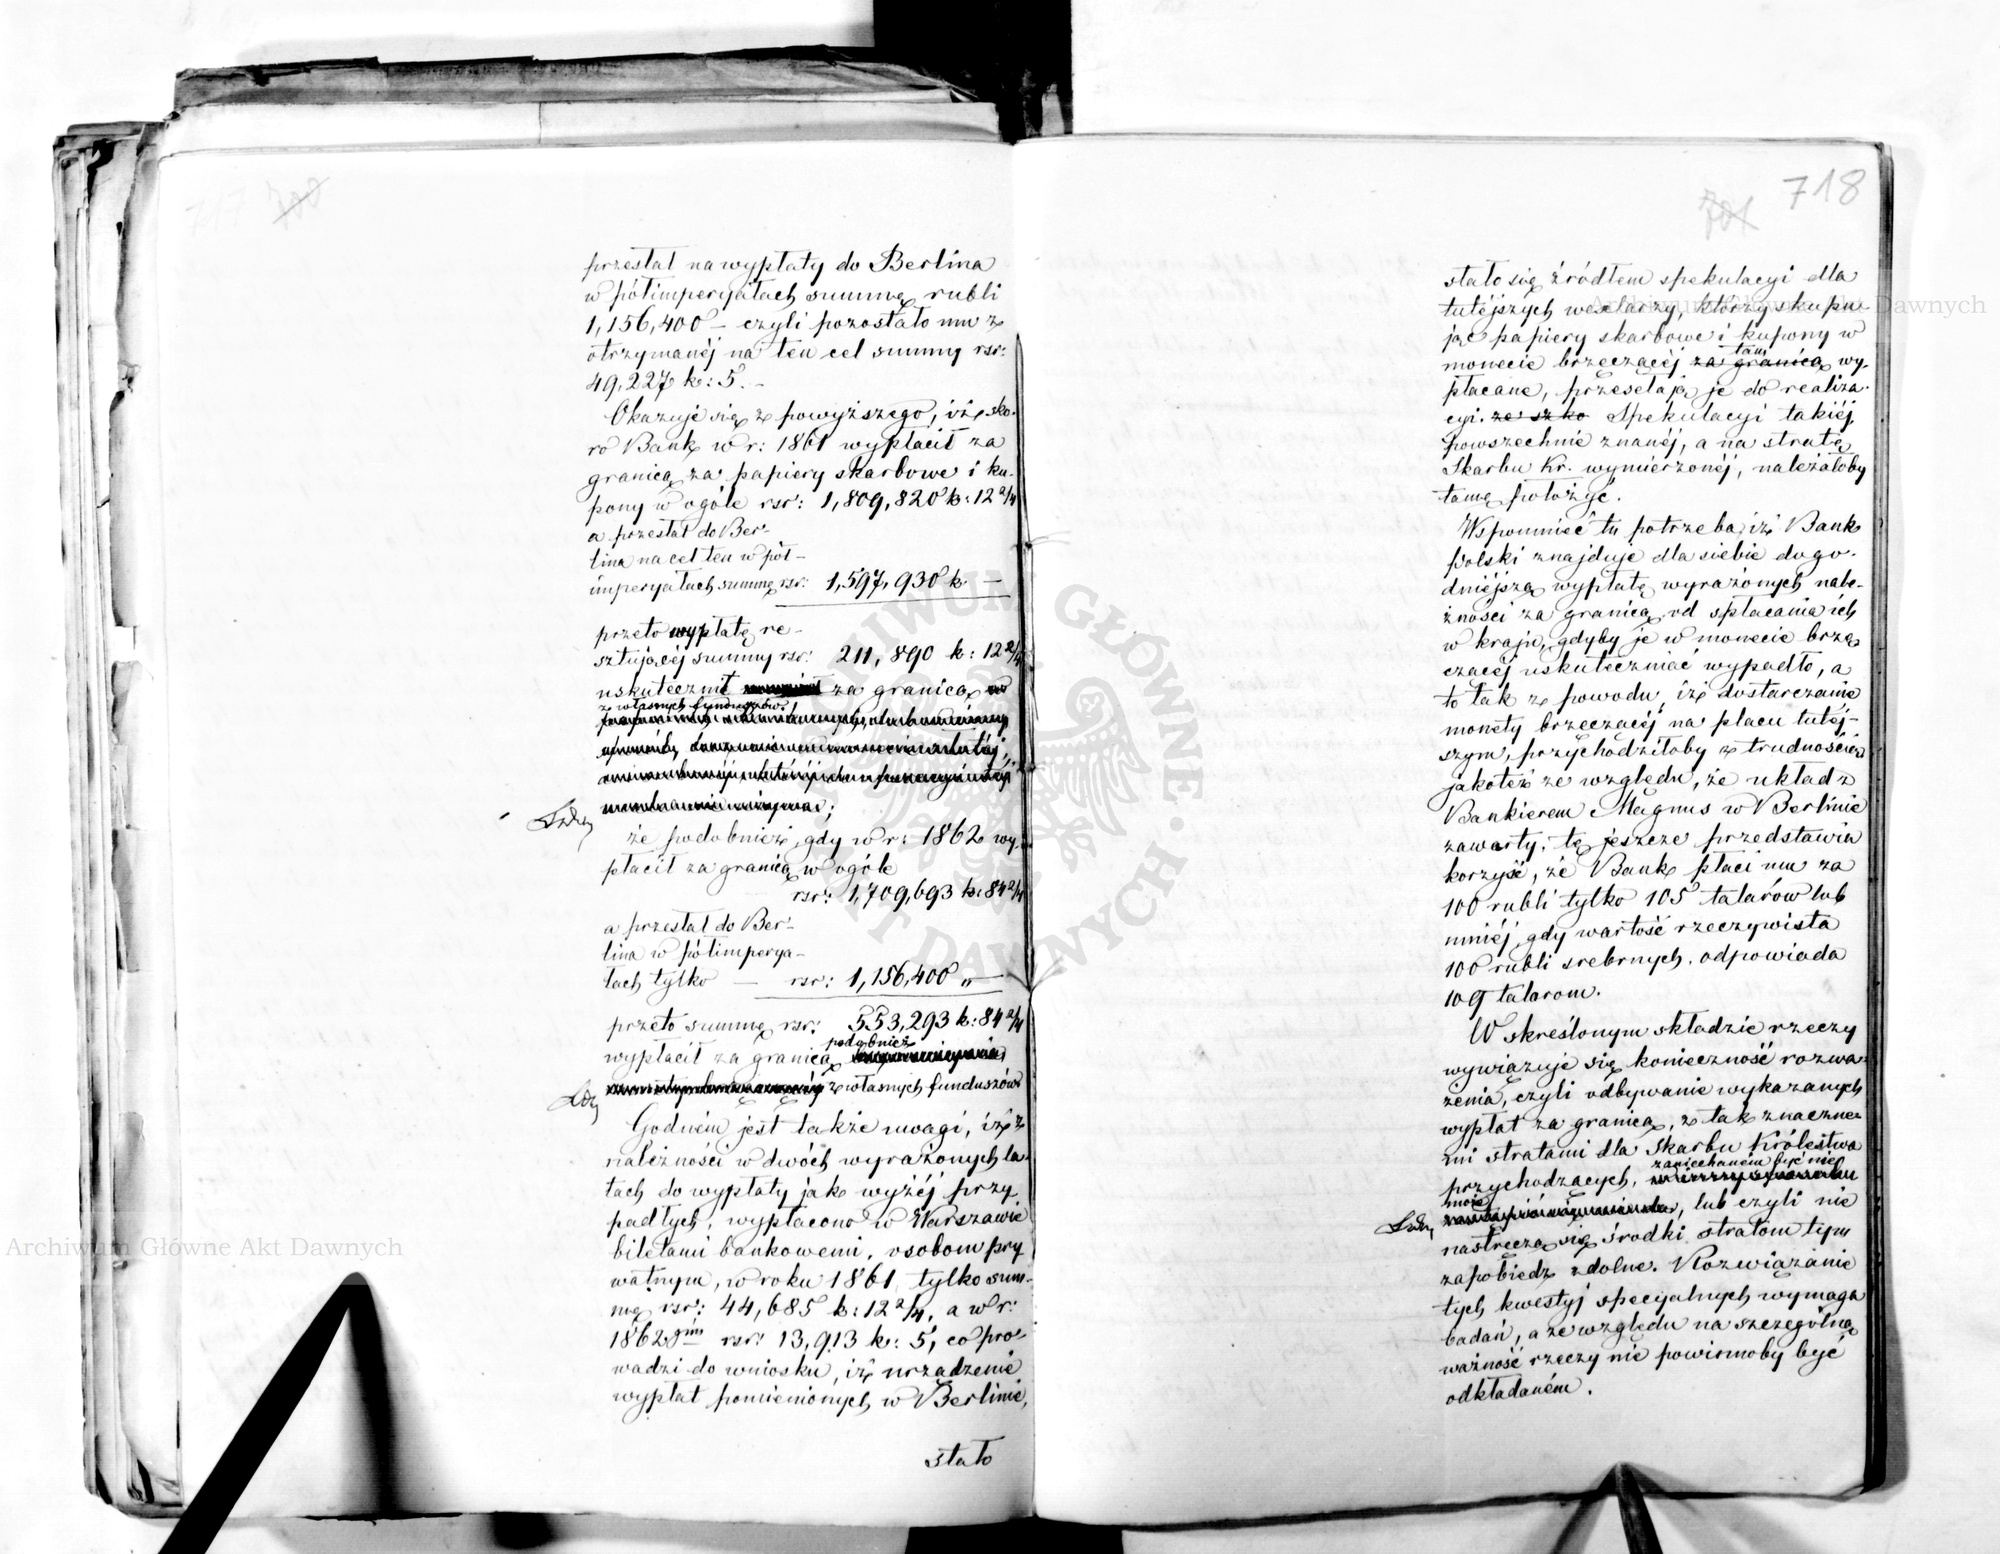 717 700
przesłał na wypłaty do Berlina
w półimperyałach summę rubli
1,156,400 – czyli pozostało mu z
otrzymanéj na ten cel summy rsr:
49,227 k: 5. –
Okazuje się z powyższego, iż sko-
ro Bank w r: 1861 wypłacił za
granicą za papiery skarbowe i ku-
pony w ogóle rsr: 1,809,820 k: 12 2/4
a przesłał do Ber-
lina na cel ten w pół-
imperyałach summę rsr: 1,597,930 k –
przeto wypłatę re-
sztującéj summy rsr: 211,890 k: 12 2/4
uskutecznił za granicą
z własnych funduszów
;
że podobnież, gdy w r: 1862 wy-
płacił za granicą w ogóle
rsr: 1,709,693 k: 84 2/4
a przesłał do Ber-
lina w półimperya-
łach tylko – rsr: 1,156,400 „ –
przeto summę rsr: 553,293 k: 84 2/4
podobnież
wypłacił za granicą
z własnych funduszów
Godném jest także uwagi, iż z
należności w dwóch wyrażonych la-
tach do wypłaty jak wyżéj przy-
padłych, wypłacono w Warszawie
biletami bankowemi, osobom pry
watnym, w roku 1861 tylko sum-
mę rsr: 44,685 k: 12 2/4, a w r:
1862gim rsr: 13,913 k: 5, co pro-
wadzi do wniosku, iż urządzenie
wypłat pomienionych w Berlinie,
stało
701 718
stało się źródłem spekulacyi dla
tutéjszych wexlarzy, którzy skupu-
jąc papiery skarbowe i kupony w
tam
monecie brzęczącéj za granicą wy-
płacane, przesełają je do realiza-
cyi. ze szko Spekulacyi takiéj
powszechnie znanéj, a na stratę
Skarbu Kr. wymierzonéj, należałoby
tamę położyć.
Wspomnieć tu potrzeba, iż Bank
Polski znajduje dla siebie dogo-
dniejszą wypłatę wyrażonych nale-
żności za granicą, od spłacania ich
w kraju, gdyby je w monecie brzę
czącéj uskuteczniać wypadło, a
to tak z powodu, iż dostarczanie
monety brzęczącéj na placu tutéj-
szym, przychodziłoby z trudnością
jakotéż ze względu, że układ z
Bankierem Magnus w Berlinie
zawarty, tę jeszcze przedstawia
korzyść, że Bank płaci mu za
100 rubli tylko 105 talarów lub
mniéj, gdy wartość rzeczywista
100 rubli srebrnych, odpowiada
109 talarom.
W skreślonym składzie rzeczy
wywiązuje się konieczność rozwa-
żenia, czyli odbywanie wykazanych
wypłat za granicą, z tak znaczne-
mi stratami dla Skarbu Królestwa
zaniechaném być nie
przychodzących,
może
, lub czyli nie
nastręczą się środki stratom tym
zapobiedz zdolne. Rozwiązanie
tych kwestyj specyalnych wymaga
badań, a ze względu na szczególną
ważność rzeczy nie powinnoby być
odkładaném.
Archiwum Główne Akt Dawnych
Archiwum Główne Akt Dawnych
ARCHIWUM GŁÓWNE AKT DAWNYCH